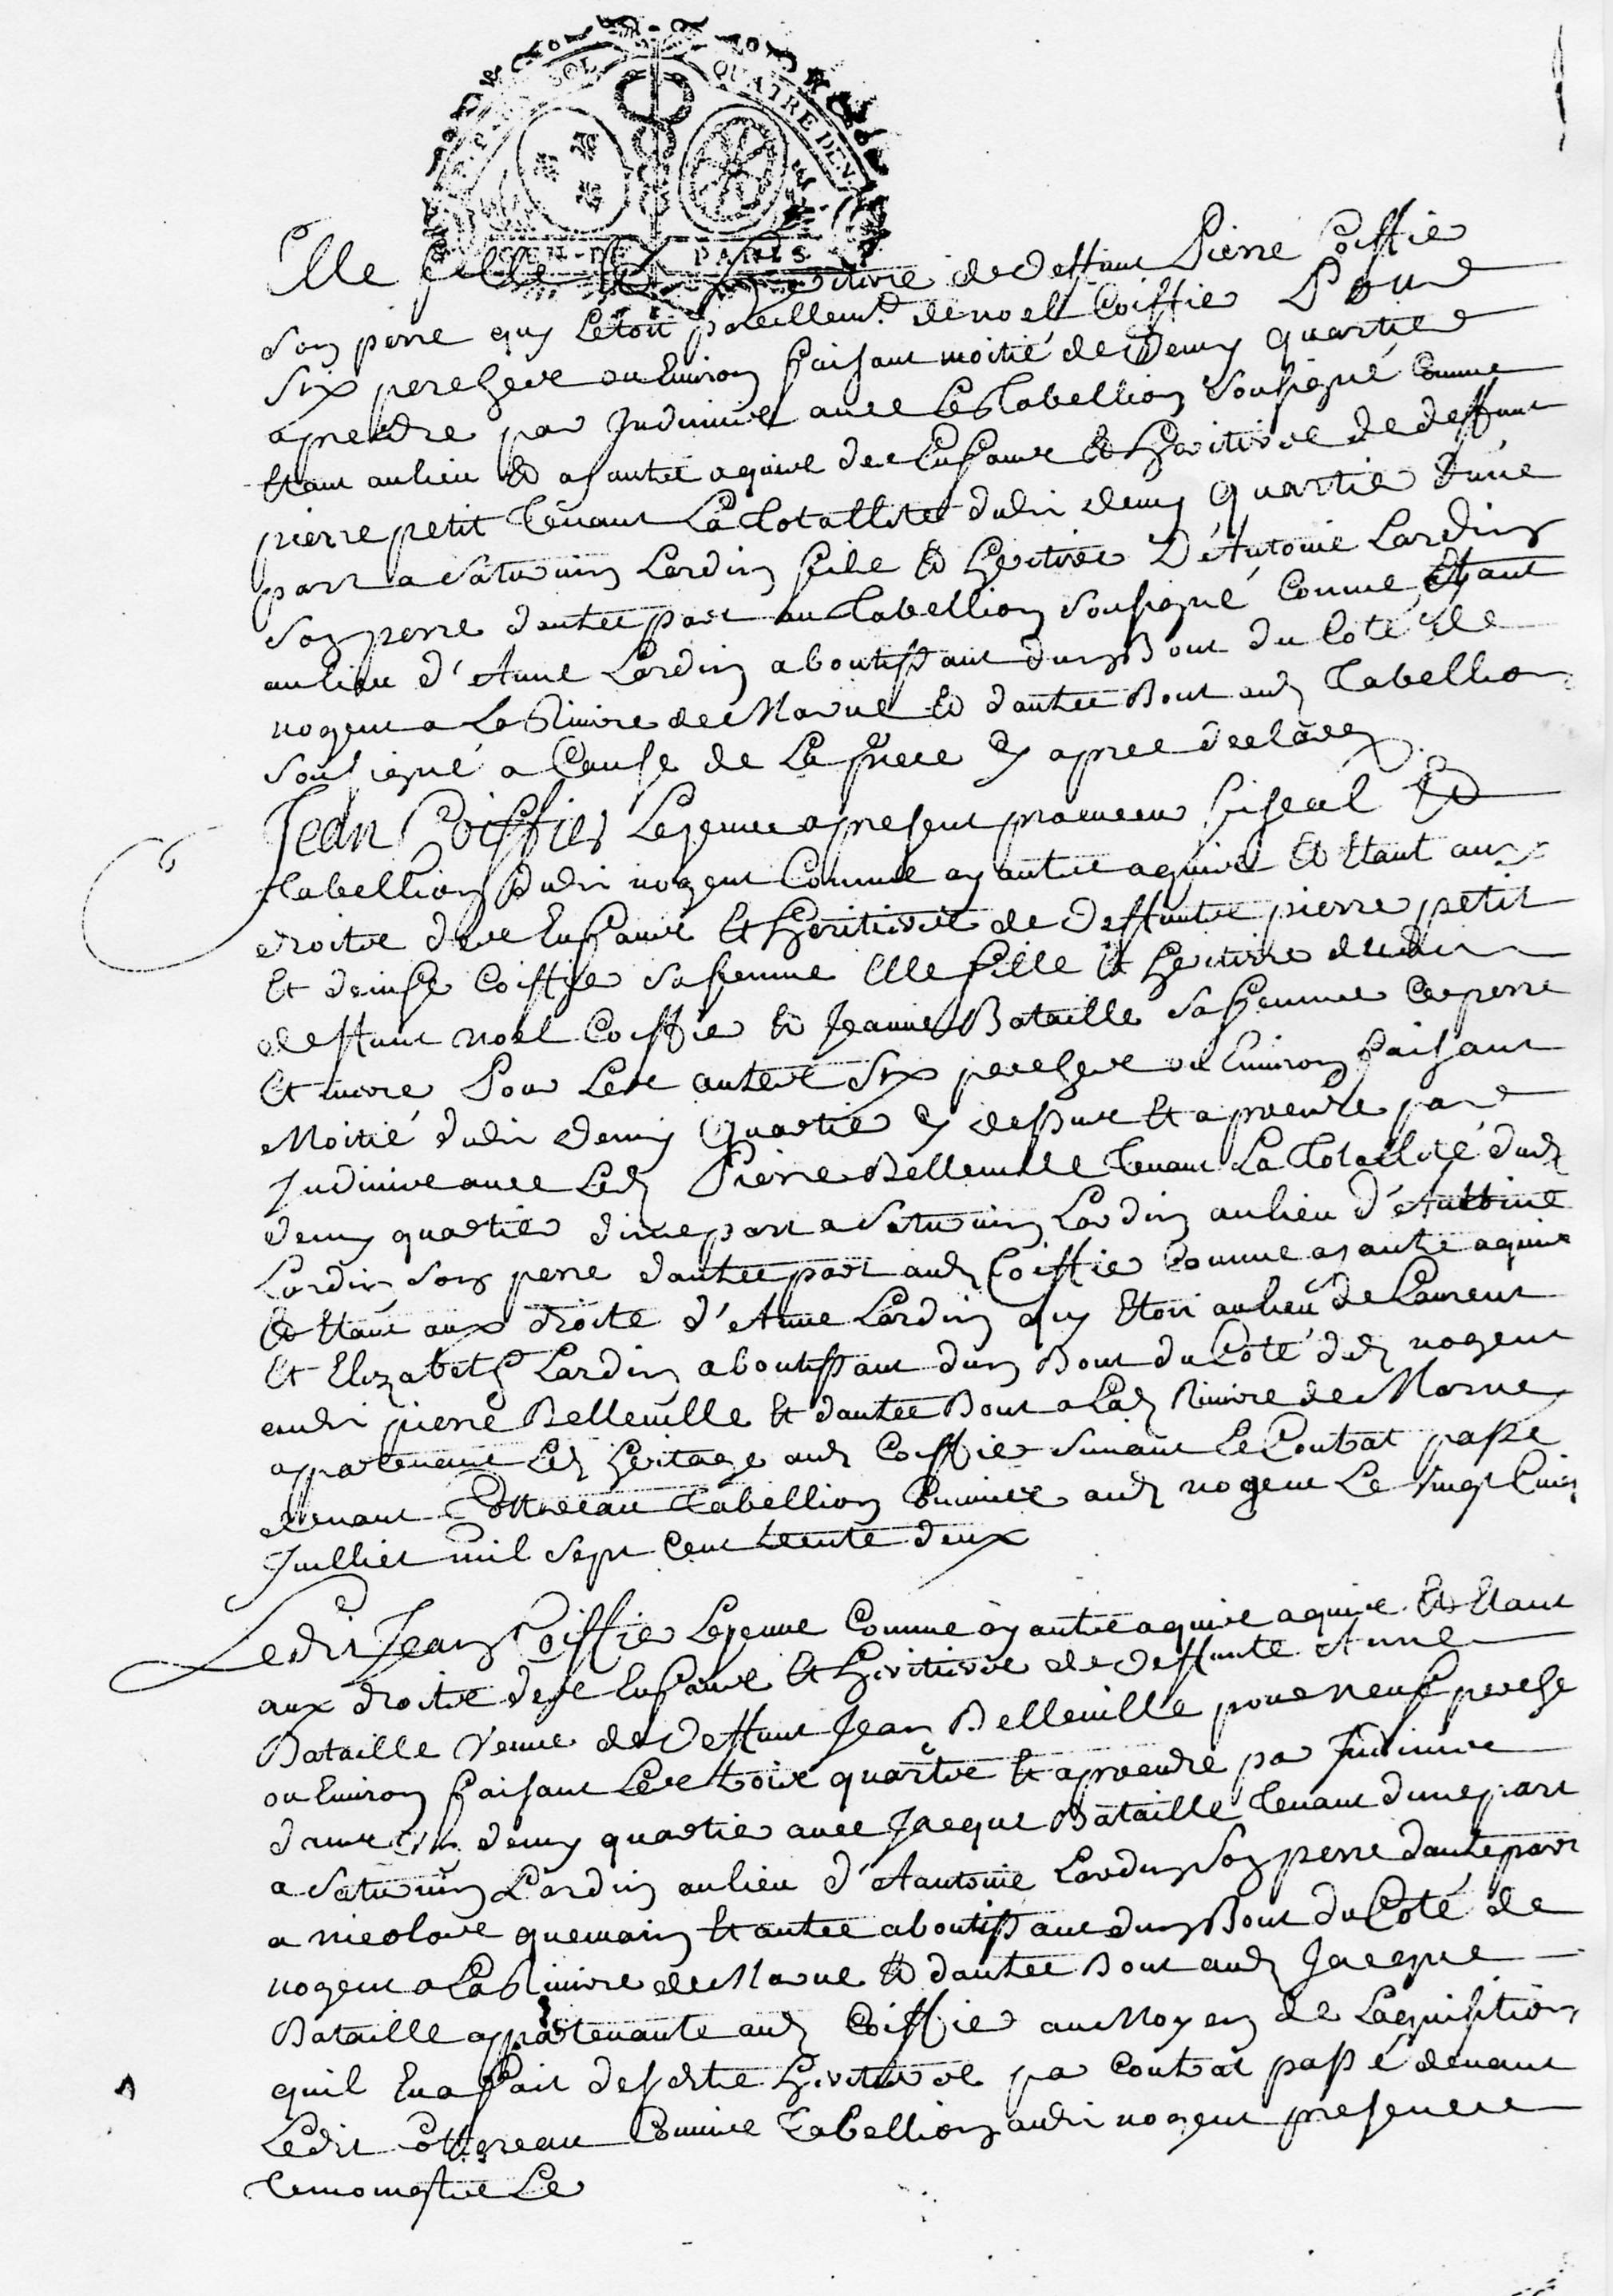 SOL QUATRE DEN.
GEN. DE PARIS
Elle fille Et heritiere de Deffunt Pierre Coiffié
Son perre quy Letoit pareillemt. de noel Coiffié Pour
Six perches ou Environ faisant moitié de Demy quartié
aprendre par Indivive avec Le Tabellion Sousigné Comme
Etant aulieu Et ayantce aquive des Enfans Et Heritiers de deffunt
pierre petit Tenant La Totallité dudit demy quartié d'une
part a Saturnin Lardin fils Et heritier D'Antoine Lardin
Son perre dautre part au Tabellion Sousigné Comme Etant
aulieu d'Anne Lardin aboutissant dun Bout du Coté de
nogent a La Rivire de Marne Et dautre Bout aud Tabellion
Sousigné a Cause de La piece Cy apres declarée
Jean Coiffier Lejeune apresent procureur fiscal Et
Tabellion dudit nogent Comme ayantce aquive Et Etant aux
droits des Enfans Et Heritiers de Deffuncts pierre petit
Et denise Coiffié Safemme Elle fille Et heritiere dudit
deffunt noel Coiffié Et Jeanne Bataille Safemme Ces perre
Et merre Pour Les autres Six perches ou Environ faisant
Moitié dudit demy Quartié Cy dessus Et aprendre par
Indivive avec Led Pierre Belleville Tenant La Totallité dud
demy quartié dune part a Saturnin Lardin aulieu d'Antoine
Lardin Son perre dautre part aud Coiffié Comme ayantce aquive
Et Etant aux droits d'Anne Lardin quy Etoit aulieu de Laurent
Et Elizabeth Lardin aboutissant dun Bout du Coté dud nogent
audit pierre Belleville Et dautre Bout a Lad Rivire de Marne
appartenant Led heritage aud Coiffié Suivant Le Contrat passé
devant Cottereau Tabellion Commis aud nogent Le Vingt Cinq
Juilliet mil Sept Cent trente deux
Ledit Jean Coiffié Lejeune Comme ayantce aquive aquive Et Etant
aux droits des Enfans Et Heritiers de Deffunte Anne
Bataille Veuve de Deffunt Jean Belleville pour neuf perche
ou Environ faisant Les trois quarts Et aprendre par Indivive
dans Un demy quartié avec Jacque Bataille Tenant dune part
a Saturnin Lardin aulieu d'Antoine Lardin Son perre dautre part
a nicolas quemain Et autre aboutissant dun Bout du Coté de
nogent a La Rivire de Marne Et dautre Bout aud Jacque
Bataille appartenante aud Coiffié au Moyen de Laquisition
quil En a fait desdits Heritiers par Contrat passé devant
Ledit Cottereau Commis Tabellion audit nogent presence
Temoins Le